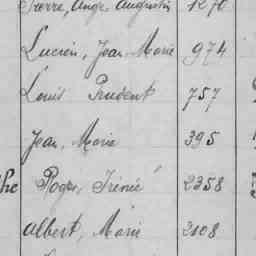 Pierre, Ange, Augustin 1270
Lucien, Jean, Marie 974
Louis Prudent 757
Jean, Marie 395
the Roger, Irénée 2358
Albert, Marie 2108